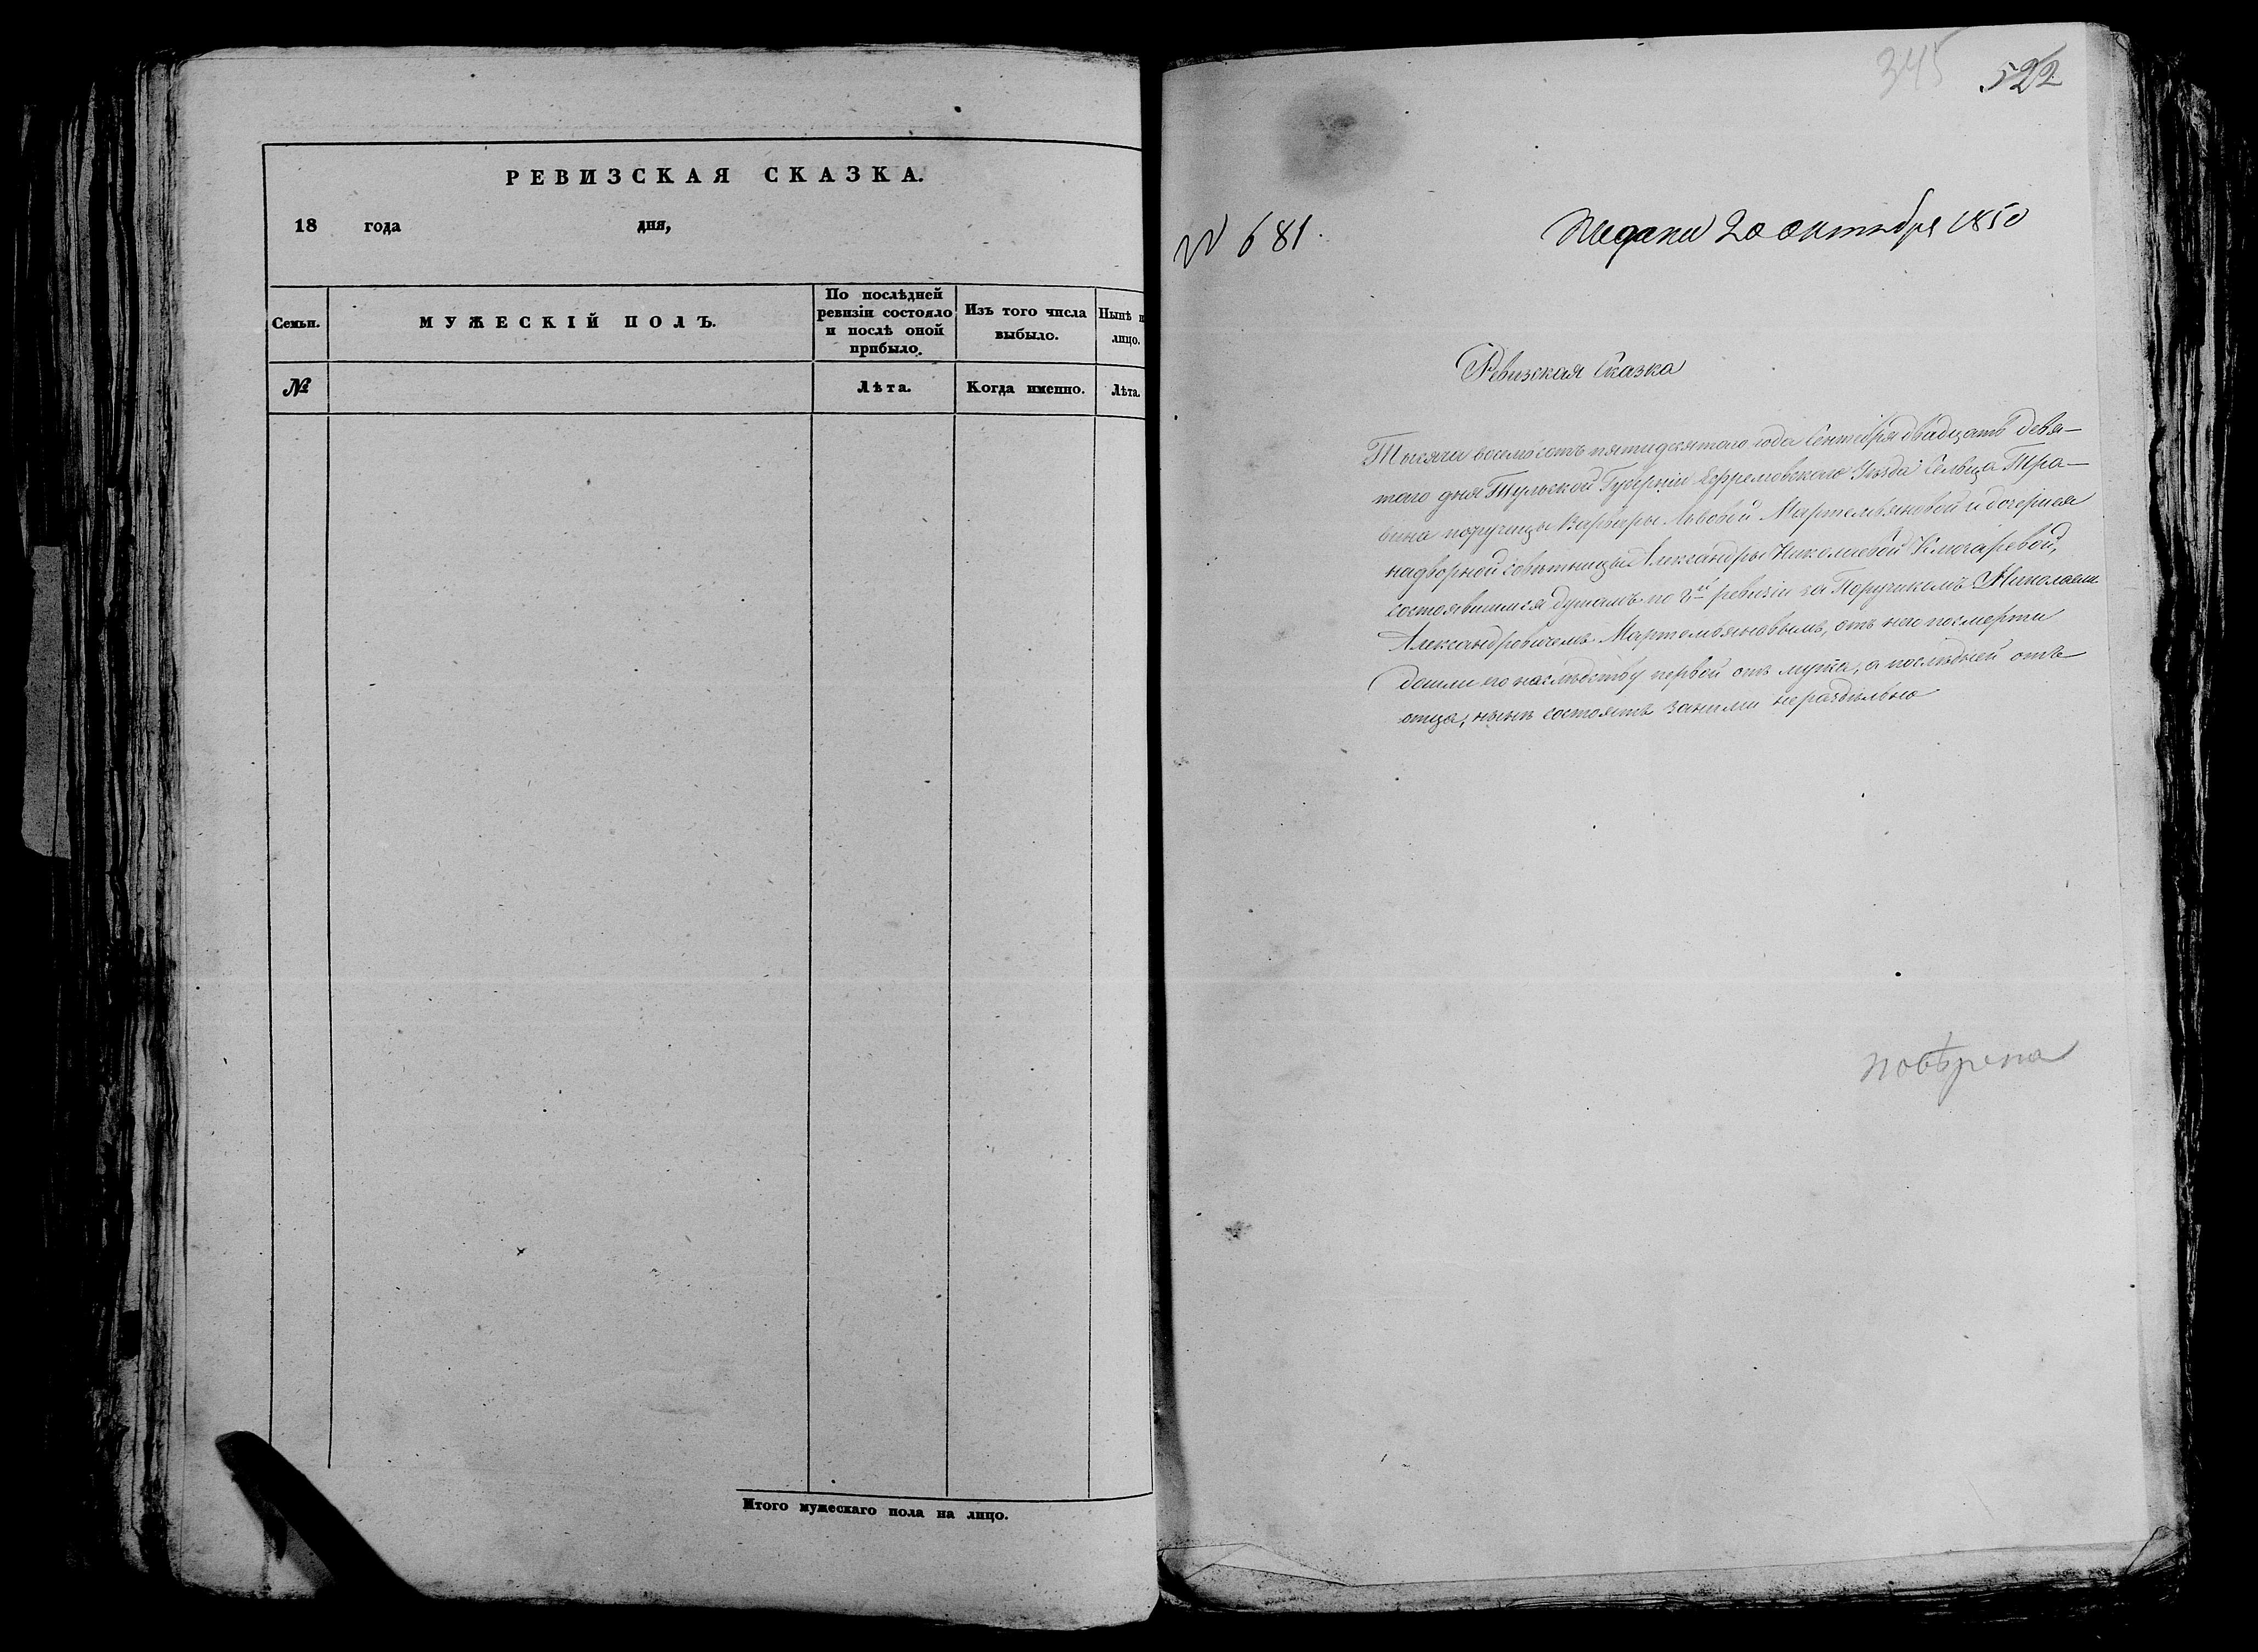 РЕВИЗСКАЯ СКАЗКА.
18 года дня,
Семьи.
МУЖЕСКІЙ ПОЛЪ.
По послѣдней
ревизіи состояло
и послѣ оной
прибыло.
Изъ того числа
выбыло.
Нынѣ н
лицо.
№
Лѣта.
Когда именно.
Лѣта.
Итого мужескаго пола на лицо.
345 522
N 681.
20 октября 1850
Ревизская Сказка
Тысяча восемьсотъ пятидесятого года Сентября двадцать девя-
того дня Тульской Губерніи Ефремовского Уѣзда Сельца Тра-
вина порутчицы Варвары Львовой Мартемьяновой и дочери ея
надворной совѣтницы Александры Николаевой Ключаревой,
состоявшимся душамъ по 8й ревизіи за Поручикомъ Николаем
Александровичемъ Мартемьяновымъ, отъ него посмерти
дошли по наслѣдству первой отъ мужа, а послѣдней отъ
отца, нынѣ состоятъ заними нераздѣльно
повѣрена